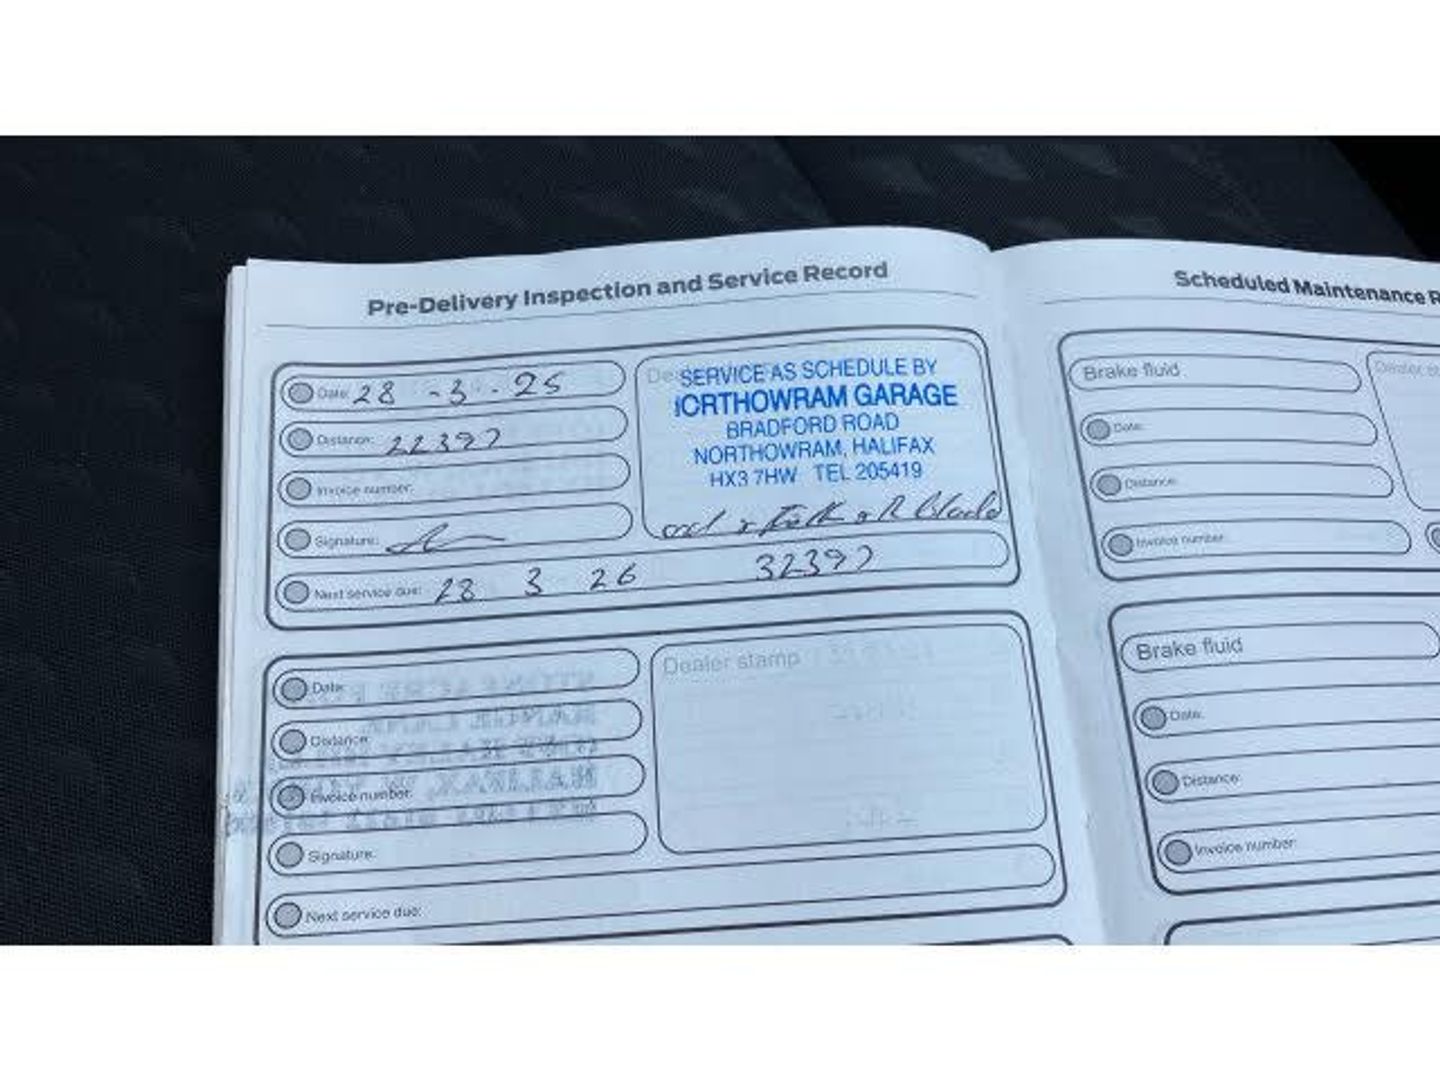 Pre-Delivery Inspection and Service Record
Date: 28 - 3 - 25
Distance: 22397
Invoice number:
Signature:
SERVICE AS SCHEDULE BY
NORTHOWRAM GARAGE
BRADFORD ROAD
NORTHOWRAM, HALIFAX
HX3 7HW TEL 205419
Next service due: 28 3 26 32397
Date:
Distance:
Invoice number:
Signature:
Dealer stamp
Next service due:
Scheduled Maintenance R
Brake fluid
Date:
Distance:
Invoice number:
Dealer st
Brake fluid
Date:
Distance:
Invoice number: